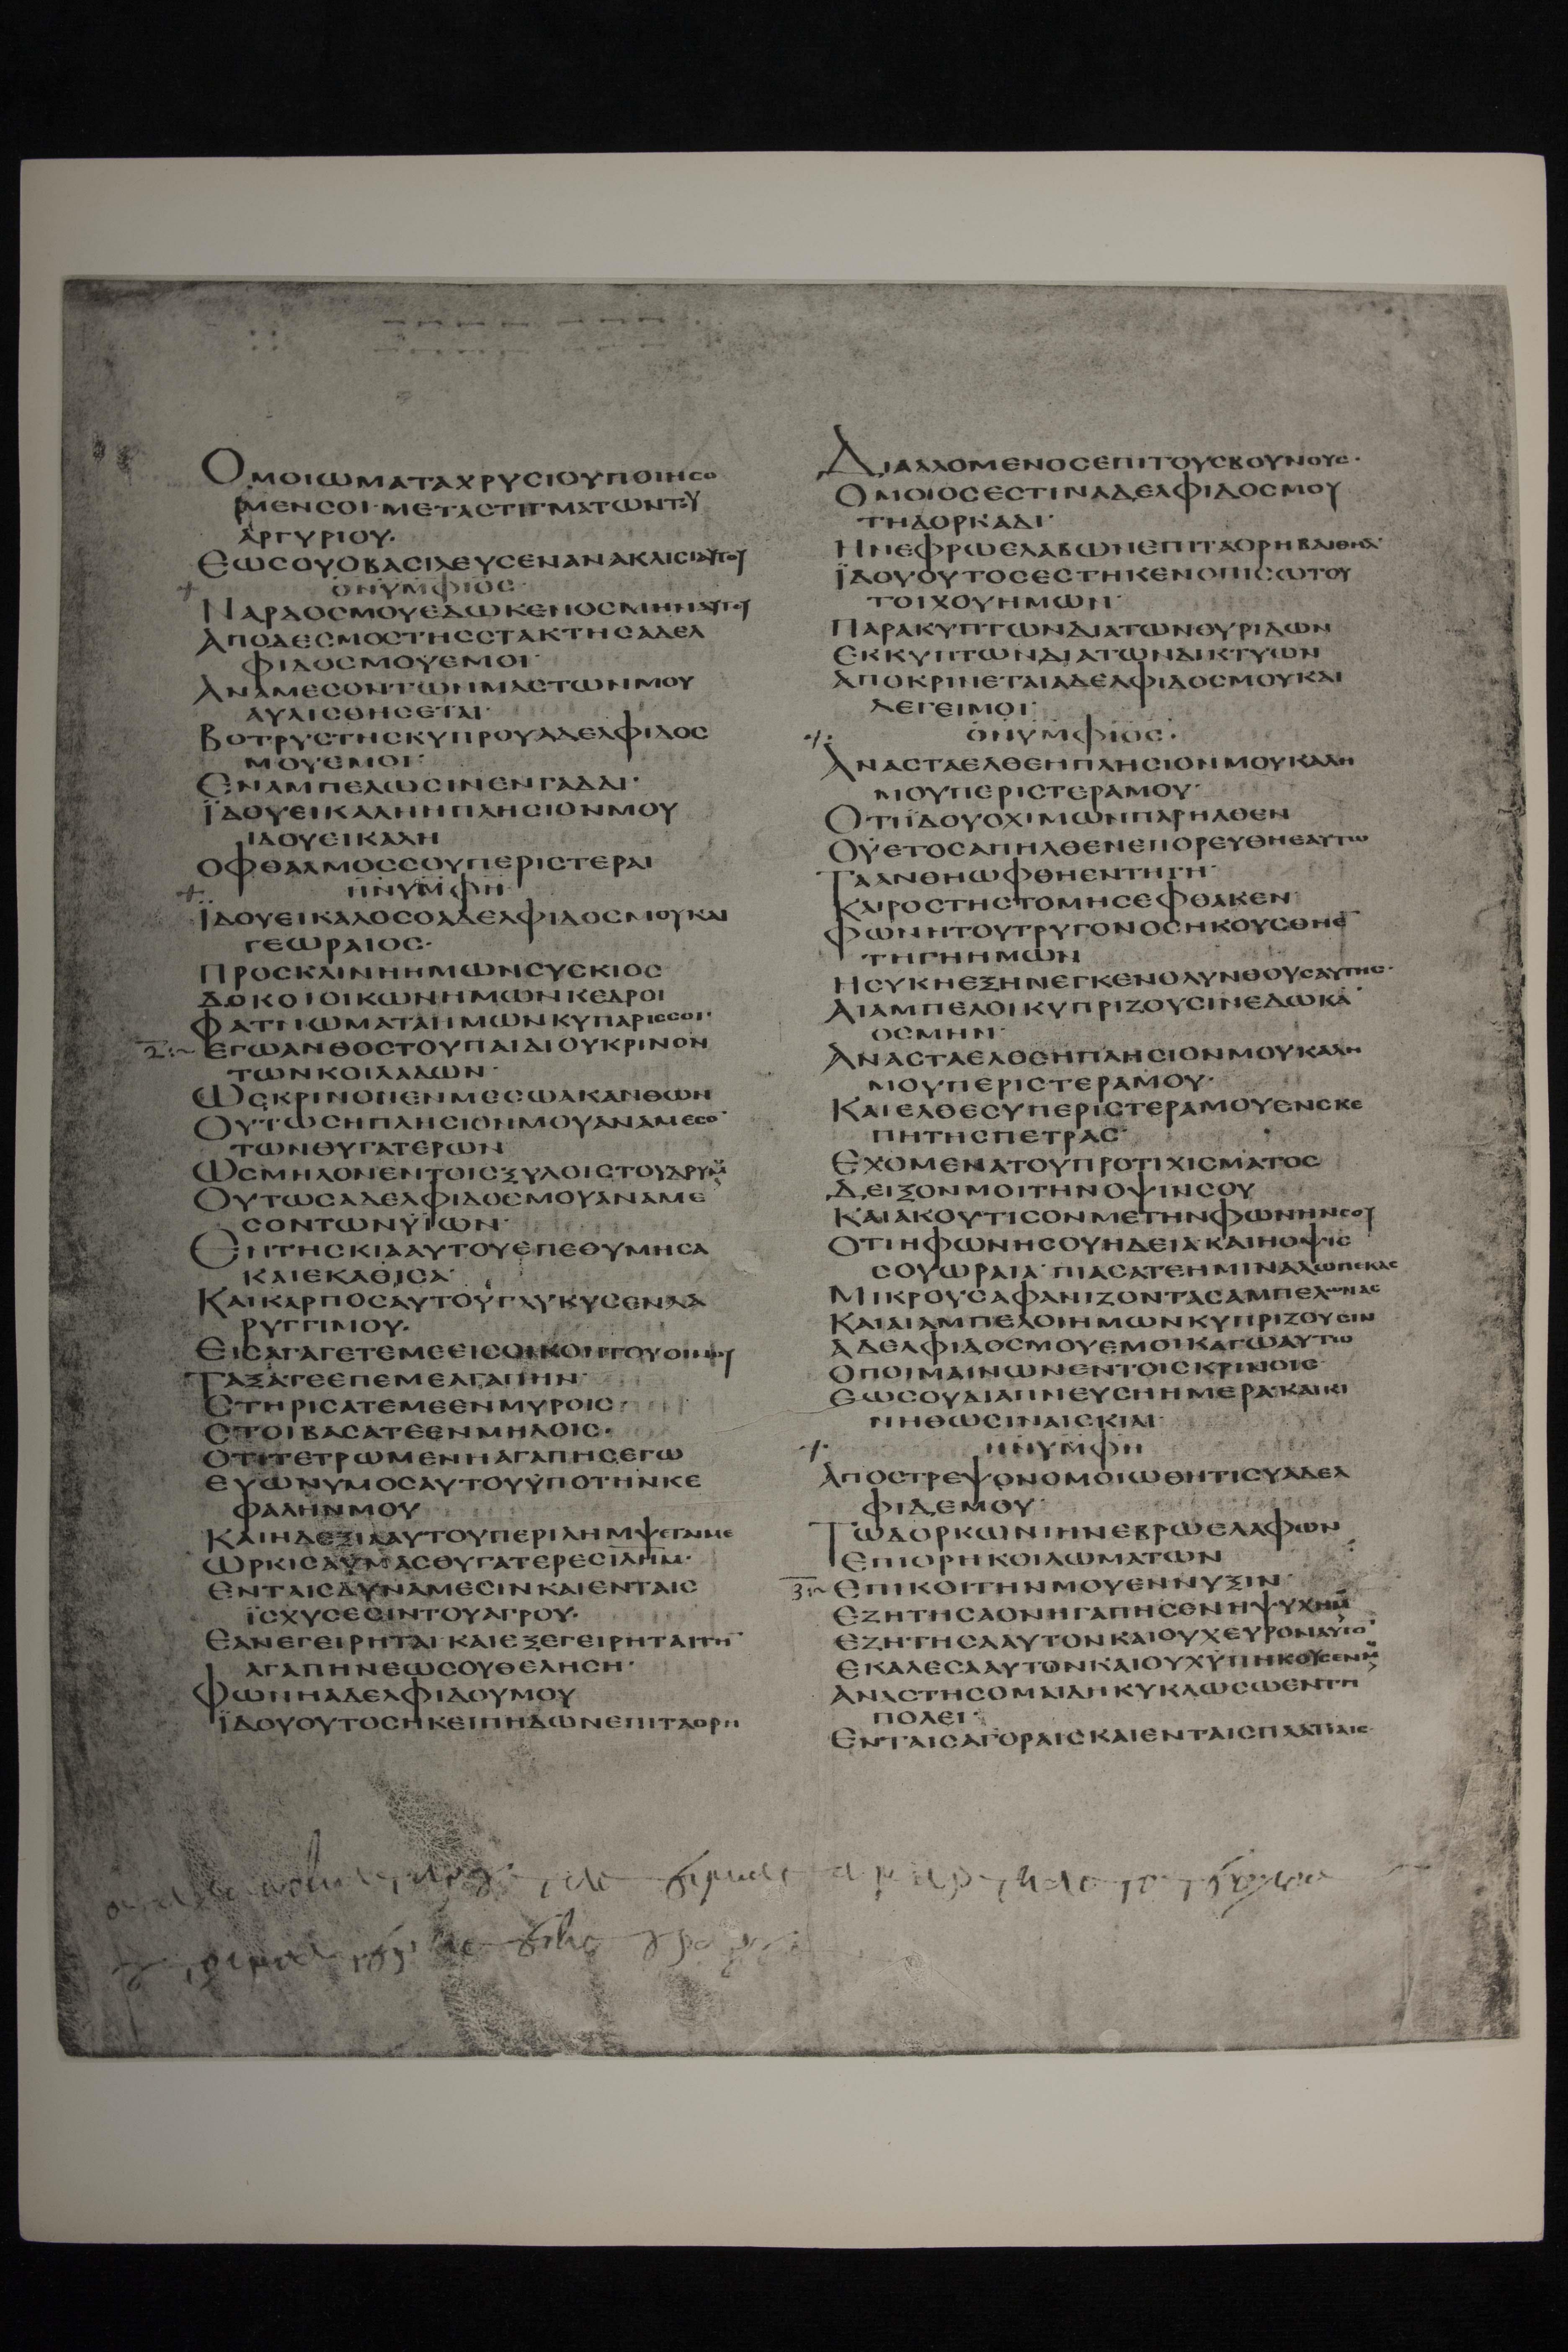 ΟΜΟΙΩΜΑΤΑΧΡΥϹΙΟΥΠΟΙΗϹΟ
ΜΕΝϹΟΙ·ΜΕΤΑϹΤΙΓΜΑΤΩΝΤΟΥ
ΑΡΓΥΡΙΟΥ·
ΕΩϹΟΥΟΒΑϹΙΛΕΥϹΕΝΑΝΑΚΛΙϹΙΑΥΤΟΥ
ΟΝΥΜΦΙΟϹ·
ΝΑΡΔΟϹΜΟΥΕΔΩΚΕΝΟϹΜΗΝΑΥΤΟΥ
ΑΠΟΔΕϹΜΟϹΤΗϹϹΤΑΚΤΗϹΑΔΕΛ
ΦΙΔΟϹΜΟΥΕΜΟΙ·
ΑΝΑΜΕϹΟΝΤΩΝΜΑϹΤΩΝΜΟΥ
ΑΥΛΙϹΘΗϹΕΤΑΙ·
ΒΟΤΡΥϹΤΗϹΚΥΠΡΟΥΑΔΕΛΦΙΔΟϹ
ΜΟΥΕΜΟΙ·
ΕΝΑΜΠΕΛΩϹΙΝΕΝΓΑΔΔΙ·
ΪΔΟΥΕΙΚΑΛΗΗΠΛΗϹΙΟΝΜΟΥ
ΙΔΟΥΕΙΚΑΛΗ
ΟΦΘΑΛΜΟϹϹΟΥΠΕΡΙϹΤΕΡΑΙ
ΗΝΥΜΦΗ
ΪΔΟΥΕΙΚΑΛΟϹΟΑΔΕΛΦΙΔΟϹΜΟΥΚΑΙ
ΓΕΩΡΑΙΟϹ·
ΠΡΟϹΚΛΙΝΗΗΜΩΝϹΥϹΚΙΟϹ
ΔΟΚΟΙΟΙΚΩΝΗΜΩΝΚΕΔΡΟΙ
ΦΑΤΝΩΜΑΤΑΗΜΩΝΚΥΠΑΡΙϹϹΟΙ·
2:~ΕΓΩΑΝΘΟϹΤΟΥΠΑΙΔΙΟΥΚΡΙΝΟΝ
ΤΩΝΚΟΙΛΑΔΩΝ·
ΩϹΚΡΙΝΟΝΕΝΜΕϹΩΑΚΑΝΘΩΝ
ΟΥΤΩϹΗΠΛΗϹΙΟΝΜΟΥΑΝΑΜΕϹΟ¯
ΤΩΝΘΥΓΑΤΕΡΩΝ
ΩϹΜΗΛΟΝΕΝΤΟΙϹΞΥΛΟΙϹΤΟΥΔΡΥΜΟΥ
ΟΥΤΩϹΑΔΕΛΦΙΔΟϹΜΟΥΑΝΑΜΕ
ϹΟΝΤΩΝΫΙΩΝ·
ΕΝΤΗϹΚΙΑΑΥΤΟΥΕΠΕΘΥΜΗϹΑ
ΚΑΙΕΚΑΘΙϹΑ·
ΚΑΙΚΑΡΠΟϹΑΥΤΟΥΓΛΥΚΥϹΕΝΛΑ
ΡΥΓΓΙΜΟΥ·
ΕΙϹΑΓΑΓΕΤΕΜΕΕΙϹΟΙΚΟΝΤΟΥΟΙΝΟΥ
ΤΑΞΑΤΕΕΠΕΜΕΑΓΑΠΗΝ·
ϹΤΗΡΙϹΑΤΕΜΕΕΝΜΥΡΟΙϹ·
ϹΤΟΙΒΑϹΑΤΕΕΝΜΗΛΟΙϹ·
ΟΤΙΤΕΤΡΩΜΕΝΗΑΓΑΠΗϹΕΓΩ
ΕΥΩΝΥΜΟϹΑΥΤΟΥΫΠΟΤΗΝΚΕ
ΦΑΛΗΝΜΟΥ
ΚΑΙΗΔΕΞΙΑΑΥΤΟΥΠΕΡΙΛΗΜΨΕΤΑΙΜΕ
ΩΡΚΙϹΑΥΜΑϹΘΥΓΑΤΕΡΕϹΙΛΗΜ·
ΕΝΤΑΙϹΔΥΝΑΜΕϹΙΝΚΑΙΕΝΤΑΙϹ
ΪϹΧΥϹΕϹΙΝΤΟΥΑΓΡΟΥ·
ΕΑΝΕΓΕΙΡΗΤΑΙ·ΚΑΙΕΞΕΓΕΙΡΗΤΑΙΤΗ¯
ΑΓΑΠΗΝΕΩϹΟΥΘΕΛΗϹΗ·
ΦΩΝΗΑΔΕΛΦΙΔΟΥΜΟΥ
ΪΔΟΥΟΥΤΟϹΗΚΕΙΠΗΔΩΝΕΠΙΤΑΟΡΗ
ΔΙΑΛΛΟΜΕΝΟϹΕΠΙΤΟΥϹΒΟΥΝΟΥϹ·
ΟΜΟΙΟϹΕϹΤΙΝΑΔΕΛΦΙΔΟϹΜΟΥ
ΤΗΔΟΡΚΑΔΙ·
ΗΝΕΦΡΩΕΛΑΒΩΝΕΠΙΤΑΟΡΗΒΑΙΘΗΛ·
ΪΔΟΥΟΥΤΟϹΕϹΤΗΚΕΝΟΠΙϹΩΤΟΥ
ΤΟΙΧΟΥΗΜΩΝ·
ΠΑΡΑΚΥΠΤΩΝΔΙΑΤΩΝΘΥΡΙΔΩΝ
ΕΚΚΥΠΤΩΝΔΙΑΤΩΝΔΙΚΤΥΩΝ
ΑΠΟΚΡΙΝΕΤΑΙΑΔΕΛΦΙΔΟϹΜΟΥΚΑΙ
ΛΕΓΕΙΜΟΙ·
ΟΝΥΜΦΙΟϹ·
ΑΝΑϹΤΑΕΛΘΕΗΠΛΗϹΙΟΝΜΟΥΚΑΛΗ
ΜΟΥΠΕΡΙϹΤΕΡΑΜΟΥ·
ΟΤΙΪΔΟΥΟΧΙΜΩΝΠΑΡΗΛΘΕΝ
ΟΫΕΤΟϹΑΠΗΛΘΕΝΕΠΟΡΕΥΘΗΕΑΥΤΩ
ΤΑΑΝΘΗΩΦΘΗΕΝΤΗΓΗ·
ΚΑΙΡΟϹΤΗϹΤΟΜΗϹΕΦΘΑΚΕΝ
ΦΩΝΗΤΟΥΤΡΥΓΟΝΟϹΗΚΟΥϹΘΗΕ¯
ΤΗΓΗΗΜΩΝ
ΗϹΥΚΗΕΞΗΝΕΓΚΕΝΟΛΥΝΘΟΥϹΑΥΤΗϹ·
ΑΙΑΜΠΕΛΟΙΚΥΠΡΙΖΟΥϹΙΝΕΔΩΚΑ¯
ΟϹΜΗΝ·
ΑΝΑϹΤΑΕΛΘΕΗΠΛΗϹΙΟΝΜΟΥΚΑΛΗ
ΜΟΥΠΕΡΙϹΤΕΡΑΜΟΥ·
ΚΑΙΕΛΘΕϹΥΠΕΡΙϹΤΕΡΑΜΟΥΕΝϹΚΕ
ΠΗΤΗϹΠΕΤΡΑϹ·
ΕΧΟΜΕΝΑΤΟΥΠΡΟΤΙΧΙϹΜΑΤΟϹ
ΔΕΙΞΟΝΜΟΙΤΗΝΟΨΙΝϹΟΥ
ΚΑΙΑΚΟΥΤΙϹΟΝΜΕΤΗΝΦΩΝΗΝϹΟΥ
ΟΤΙΗΦΩΝΗϹΟΥΗΔΕΙΑ·ΚΑΙΗΟΨΙϹ
ϹΟΥΩΡΑΙΑ·ΠΙΑϹΑΤΕΗΜΙΝΑΛΩΠΕΚΑϹ
ΜΙΚΡΟΥϹΑΦΑΝΙΖΟΝΤΑϹΑΜΠΕΛΩΝΑϹ
ΚΑΙΑΙΑΜΠΕΛΟΙΗΜΩΝΚΥΠΡΙΖΟΥϹΙΝ
ΑΔΕΛΦΙΔΟϹΜΟΥΕΜΟΙΚΑΓΩΑΥΤΩ
ΟΠΟΙΜΑΙΝΩΝΕΝΤΟΙϹΚΡΙΝΟΙϹ·
ΕΩϹΟΥΔΙΑΠΝΕΥϹΗΗΜΕΡΑ·ΚΑΙΚΙ
ΝΗΘΩϹΙΝΑΙϹΚΙΑΙ·
ΗΝΥΜΦΗ
ΑΠΟϹΤΡΕΨΟΝΟΜΟΙΩΘΗΤΙϹΥΑΔΕΛ
ΦΙΔΕΜΟΥ·
ΤΩΔΟΡΚΩΝΙΗΝΕΒΡΩΕΛΑΦΩΝ
ΕΠΙΟΡΗΚΟΙΛΩΜΑΤΩΝ
3:~ΕΠΙΚΟΙΤΗΝΜΟΥΕΝΝΥΞΙΝ·
ΕΖΗΤΗϹΑΟΝΗΓΑΠΗϹΕΝΗΨΥΧΗΜΟΥ
ΕΖΗΤΗϹΑΑΥΤΟΝΚΑΙΟΥΧΕΥΡΟΝΑΥΤΟ¯
ΕΚΑΛΕϹΑΑΥΤΟΝΚΑΙΟΥΧΫΠΗΚΟΥϹΕΝΜΟΥ
ΑΝΑϹΤΗϹΟΜΑΙΔΗΚΥΚΛΩϹΩΕΝΤΗ
ΠΟΛΕΙ·
ΕΝΤΑΙϹΑΓΟΡΑΙϹΚΑΙΕΝΤΑΙϹΠΛΑΤΙΑΙϹ